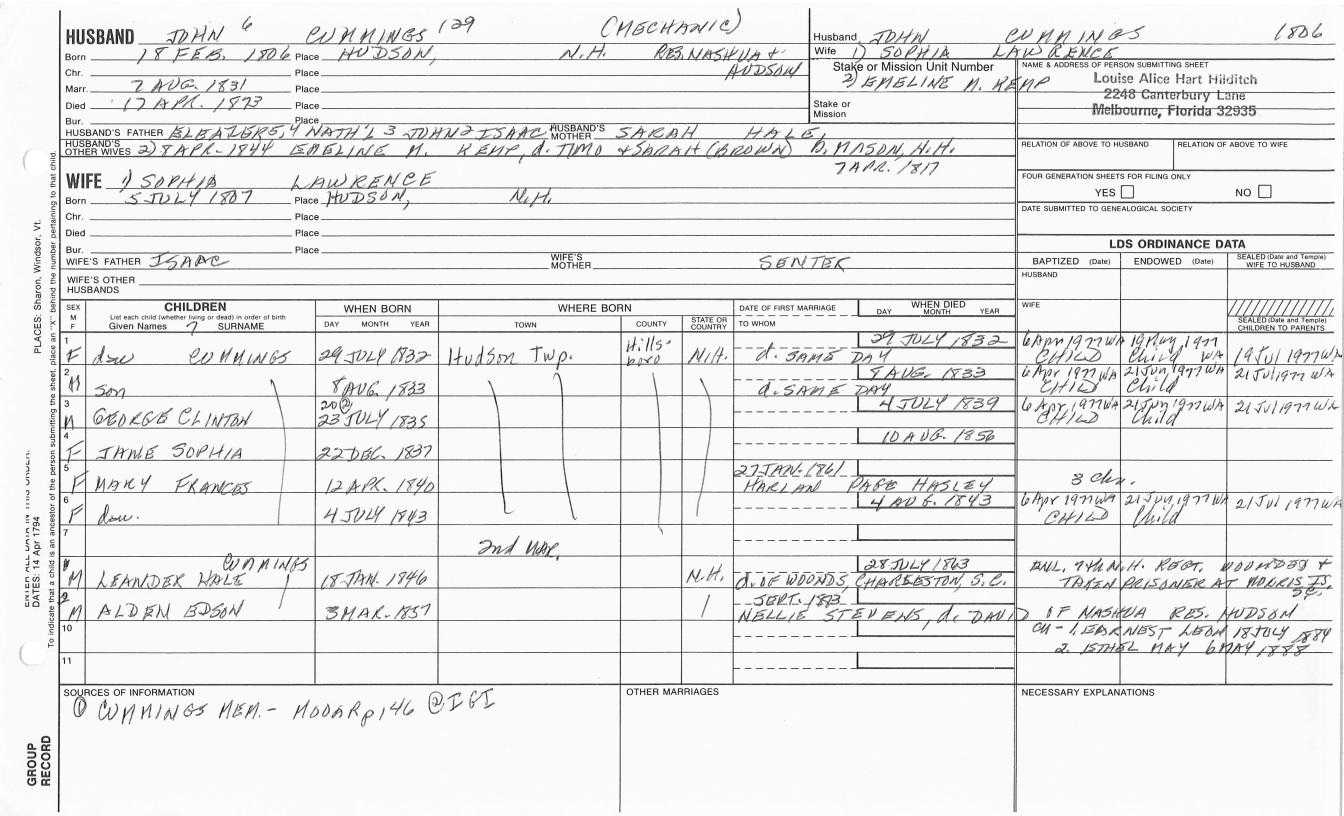 HUSBAND JOHN 6 CUMMINGS 129 (MECHANIC)
Born 18 FEB. 1806 Place HUDSON, N.H. RES. NASHUA + HUDSON
Chr. Place
Marr. 7 AUG. 1831 Place
Died 17 APR. 1873 Place
Bur. Place
HUSBAND'S FATHER ELEAZER5, 4 NATH'L 3 JOHN2 ISAAC HUSBAND'S MOTHER SARAH HALE,
HUSBAND'S OTHER WIVES 2) 8 APR. 1844 EMELINE M. KEMP, d. TIMO + SARAH (BROWN) b. MASON, N.H.
7 APR. 1817
WIFE 1) SOPHIA LAWRENCE
Born 5 JULY 1807 Place HUDSON, N.H.
Chr. Place
Died Place
Bur. Place
WIFE'S FATHER ISAAC WIFE'S MOTHER SENTER
WIFE'S OTHER HUSBANDS
Husband JOHN CUMMINGS 1806
Wife 1) SOPHIA LAWRENCE
Stake or Mission Unit Number
2) EMELINE M. KEMP
Stake or Mission
NAME & ADDRESS OF PERSON SUBMITTING SHEET
Louise Alice Hart Hilditch
2248 Canterbury Lane
Melbourne, Florida 32935
RELATION OF ABOVE TO HUSBAND RELATION OF ABOVE TO WIFE
FOUR GENERATION SHEETS FOR FILING ONLY
YES NO
DATE SUBMITTED TO GENEALOGICAL SOCIETY
LDS ORDINANCE DATA
BAPTIZED (Date) ENDOWED (Date) SEALED (Date and Temple) WIFE TO HUSBAND
HUSBAND
WIFE
SEALED (Date and Temple) CHILDREN TO PARENTS
SEX M F CHILDREN WHEN BORN WHERE BORN DATE OF FIRST MARRIAGE WHEN DIED
List each child (whether living or dead) in order of birth
Given Names 7 SURNAME DAY MONTH YEAR TOWN COUNTY STATE OR COUNTRY TO WHOM DAY MONTH YEAR
1 F dau CUMMINGS 29 JULY 1832 Hudson Twp. Hills-boro N.H. d. SAME DAY 29 JULY 1832 6 Apr 1977 WA CHILD 19 May, 1977 Child WA 19 Jul 1977 WA
2 M son 8 AUG. 1833 d. SAME DAY 8 AUG. 1833 6 Apr 1977 WA CHILD 21 Jun, 1977 WA Child 21 Jul 1977 WA
3 M GEORGE CLINTON 20 @ 23 JULY 1835 4 JULY 1839 6 Apr 1977 WA CHILD 21 Jun, 1977 WA Child 21 Jul 1977 WA
4 F JANE SOPHIA 22 DEC. 1837 10 AUG. 1856
5 F MARY FRANCES 12 APR. 1840 27 JAN. 1861 HARLAN PAGE HASLEY 3 chn.
6 F dau. 4 JULY 1843 4 AUG. 1843 6 Apr 1977 WA CHILD 21 Jun, 1977 WA Child 21 Jul 1977 WA
7
2nd MAR.
1 M LEANDER HALE CUMMINGS 18 JAN. 1846 N.H. d. OF WOUNDS, CHARLESTON, S.C. 28 JULY 1863 7th N.H. REGT. WOUNDED + TAKEN PRISONER AT MORRIS IS, SC.
2 M ALDEN EDSON 3 MAR. 1857 SEPT. 1883 NELLIE STEVENS, d. DAVID OF NASHUA RES. HUDSON
10 CH - 1. EARNEST LEON 18 JULY 1884
2. ETHEL MAY 6 MAY 1888
11
SOURCES OF INFORMATION
① CUMMINGS MEM. - MODAR p 146 @ IGI
OTHER MARRIAGES
NECESSARY EXPLANATIONS
PLACES: Sharon, Windsor, Vt.
DATES: 14 Apr 1794
To indicate that a child is an ancestor of the person submitting the sheet, place an "X" behind the number pertaining to that child.
GROUP RECORD